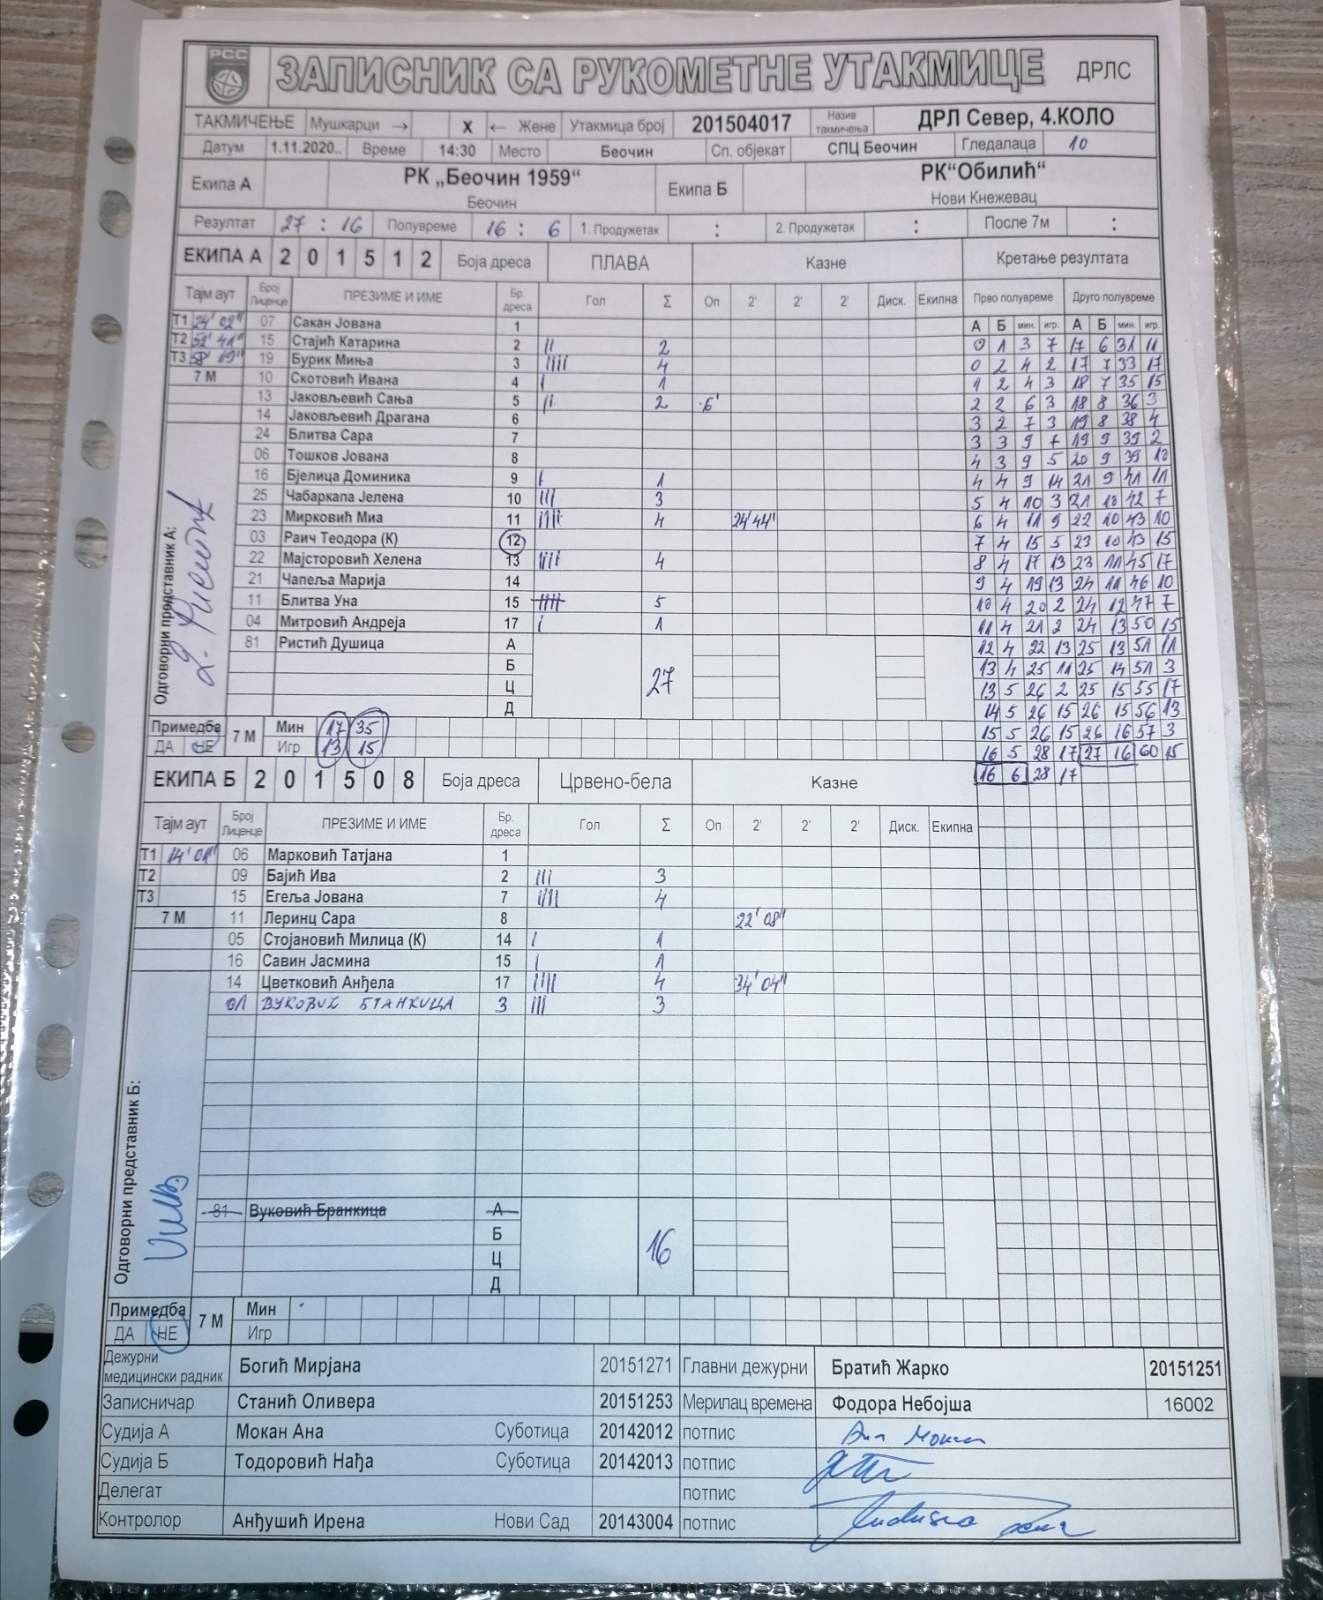 РСС
ЗАПИСНИК СА РУКОМЕТНЕ УТАКМИЦЕ ДРЛС
ТАКМИЧЕЊЕ Мушкарци → X ← Жене Утакмица број 201504017 Назив такмичења ДРЛ Север, 4.КОЛО
Датум 1.11.2020.. Време 14:30 Место Беочин Сп. објекат СПЦ Беочин Гледалаца 10
Екипа А РК „Беочин 1959“ Екипа Б РК“Обилић“
Беочин Нови Кнежевац
Резултат 27 : 16 Полувреме 16 : 6 1. Продужетак : 2. Продужетак : После 7м :
ЕКИПА А 2 0 1 5 1 2 Боја дреса ПЛАВА Казне Кретање резултата
Тајм аут Број Лиценце ПРЕЗИМЕ И ИМЕ Бр. дреса Гол Σ Оп 2' 2' 2' Диск. Екипна Прво полувреме Друго полувреме
А Б мин. игр. А Б мин. игр.
Т1 24' 02" 07 Сакан Јована 1
Т2 52' 41" 15 Стајић Катарина 2 || 2 0 1 3 7 17 6 31 11
Т3 58' 19" 19 Бурик Миња 3 |||| 4 0 2 4 2 17 7 33 17
7 М 10 Скотовић Ивана 4 | 1 1 2 4 3 18 7 35 15
13 Јаковљевић Сања 5 || 2 6' 2 2 6 3 18 8 36 3
14 Јаковљевић Драгана 6 3 2 7 3 19 8 38 4
24 Блитва Сара 7 3 3 9 7 19 9 39 2
06 Тошков Јована 8 4 3 9 5 20 9 39 10
16 Бјелица Доминика 9 | 1 4 4 9 14 21 9 41 11
25 Чабаркапа Јелена 10 ||| 3 5 4 10 3 21 10 42 7
23 Мирковић Миа 11 |||| 4 24'44" 6 4 11 9 22 10 43 10
03 Раич Теодора (К) 12 7 4 15 5 23 10 43 15
22 Мајсторовић Хелена 13 |||| 4 8 4 17 13 23 11 45 17
21 Чапеља Марија 14 9 4 19 13 24 11 46 10
11 Блитва Уна 15 |||| 5 10 4 20 2 24 12 47 7
04 Митровић Андреја 17 | 1 11 4 21 2 24 13 50 15
81 Ристић Душица А 12 4 22 13 25 13 51 11
Б 13 4 25 11 25 14 51 3
Ц 27 13 5 26 2 25 15 55 17
Д 14 5 26 15 26 15 56 13
Примедба 7 М Мин 17 35 15 5 26 15 26 16 57 3
ДА НЕ Игр 13 15 16 5 28 17 27 16 60 15
16 6 28 17
ЕКИПА Б 2 0 1 5 0 8 Боја дреса Црвено-бела Казне
Тајм аут Број Лиценце ПРЕЗИМЕ И ИМЕ Бр. дреса Гол Σ Оп 2' 2' 2' Диск. Екипна
Т1 14' 01" 06 Марковић Татјана 1
Т2 09 Бајић Ива 2 ||| 3
Т3 15 Егеља Јована 7 |||| 4
7 М 11 Леринц Сара 8 22' 08"
05 Стојановић Милица (К) 14 | 1
16 Савин Јасмина 15 | 1
14 Цветковић Анђела 17 |||| 4 34' 04"
01 3 ||| 3
81 Вуковић Бранкица А
Б
Ц 16
Д
Одговорни представник А:
Одговорни представник Б:
Примедба 7 М Мин
ДА НЕ Игр
Дежурни медицински радник Богић Мирјана 20151271 Главни дежурни Братић Жарко 20151251
Записничар Станић Оливера 20151253 Мерилац времена Фодора Небојша 16002
Судија А Мокан Ана Суботица 20142012 потпис
Судија Б Тодоровић Нађа Суботица 20142013 потпис
Делегат потпис
Контролор Анђушић Ирена Нови Сад 20143004 потпис